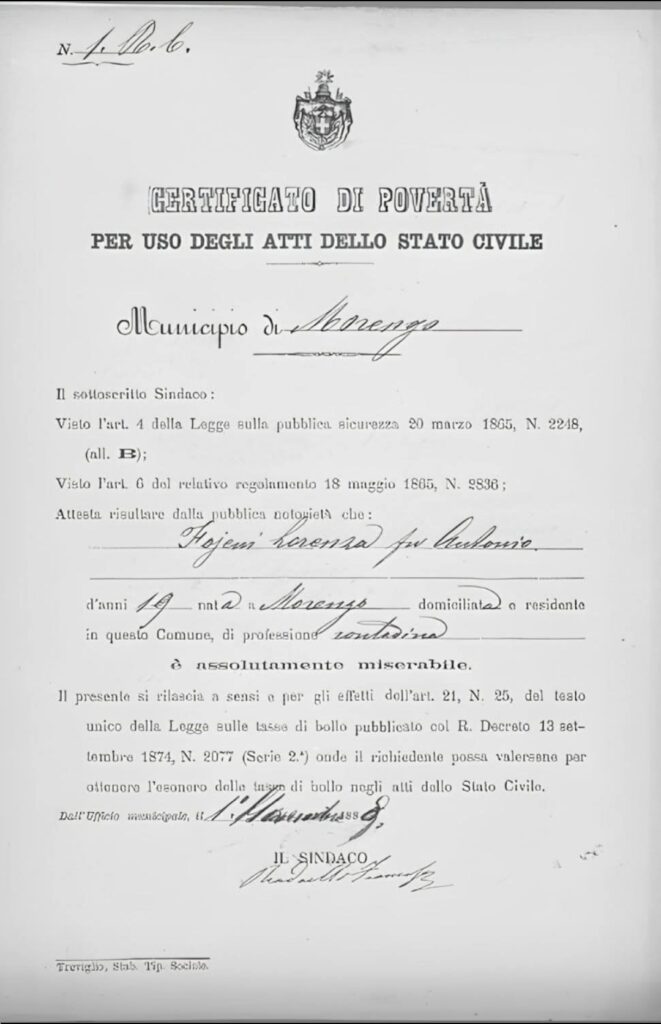 N. 1. R. C.
CERTIFICATO DI POVERTÀ
PER USO DEGLI ATTI DELLO STATO CIVILE
Municipio di Morengo
Il sottoscritto Sindaco:
Visto l'art. 4 della Legge sulla pubblica sicurezza 20 marzo 1865, N. 2248,
(all. B);
Visto l'art. 6 del relativo regolamento 18 maggio 1865, N. 2336;
Attesta risultare dalla pubblica notorietà che:
Lorenza fu Antonio
d'anni 19 nata a Morengo domiciliata e residente
in questo Comune, di professione contadina
è assolutamente miserabile.
Il presente si rilascia a sensi e per gli effetti dell'art. 21, N. 25, del testo
unico della Legge sulle tasse di bollo pubblicato col R. Decreto 13 set-
tembre 1874, N. 2077 (Serie 2.ª) onde il richiedente possa valersene per
ottenere l'esonero delle tasse di bollo negli atti dello Stato Civile.
Dall'Ufficio municipale, il 1° Novembre 188
IL SINDACO
Treviglio, Stab. Tip. Sociale.